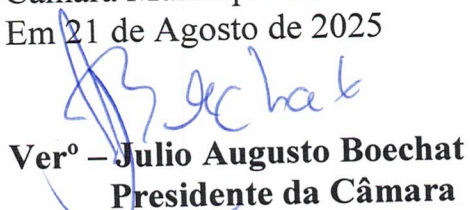 Em 21 de Agosto de 2025
Boechat
Verº – Julio Augusto Boechat
Presidente da Câmara